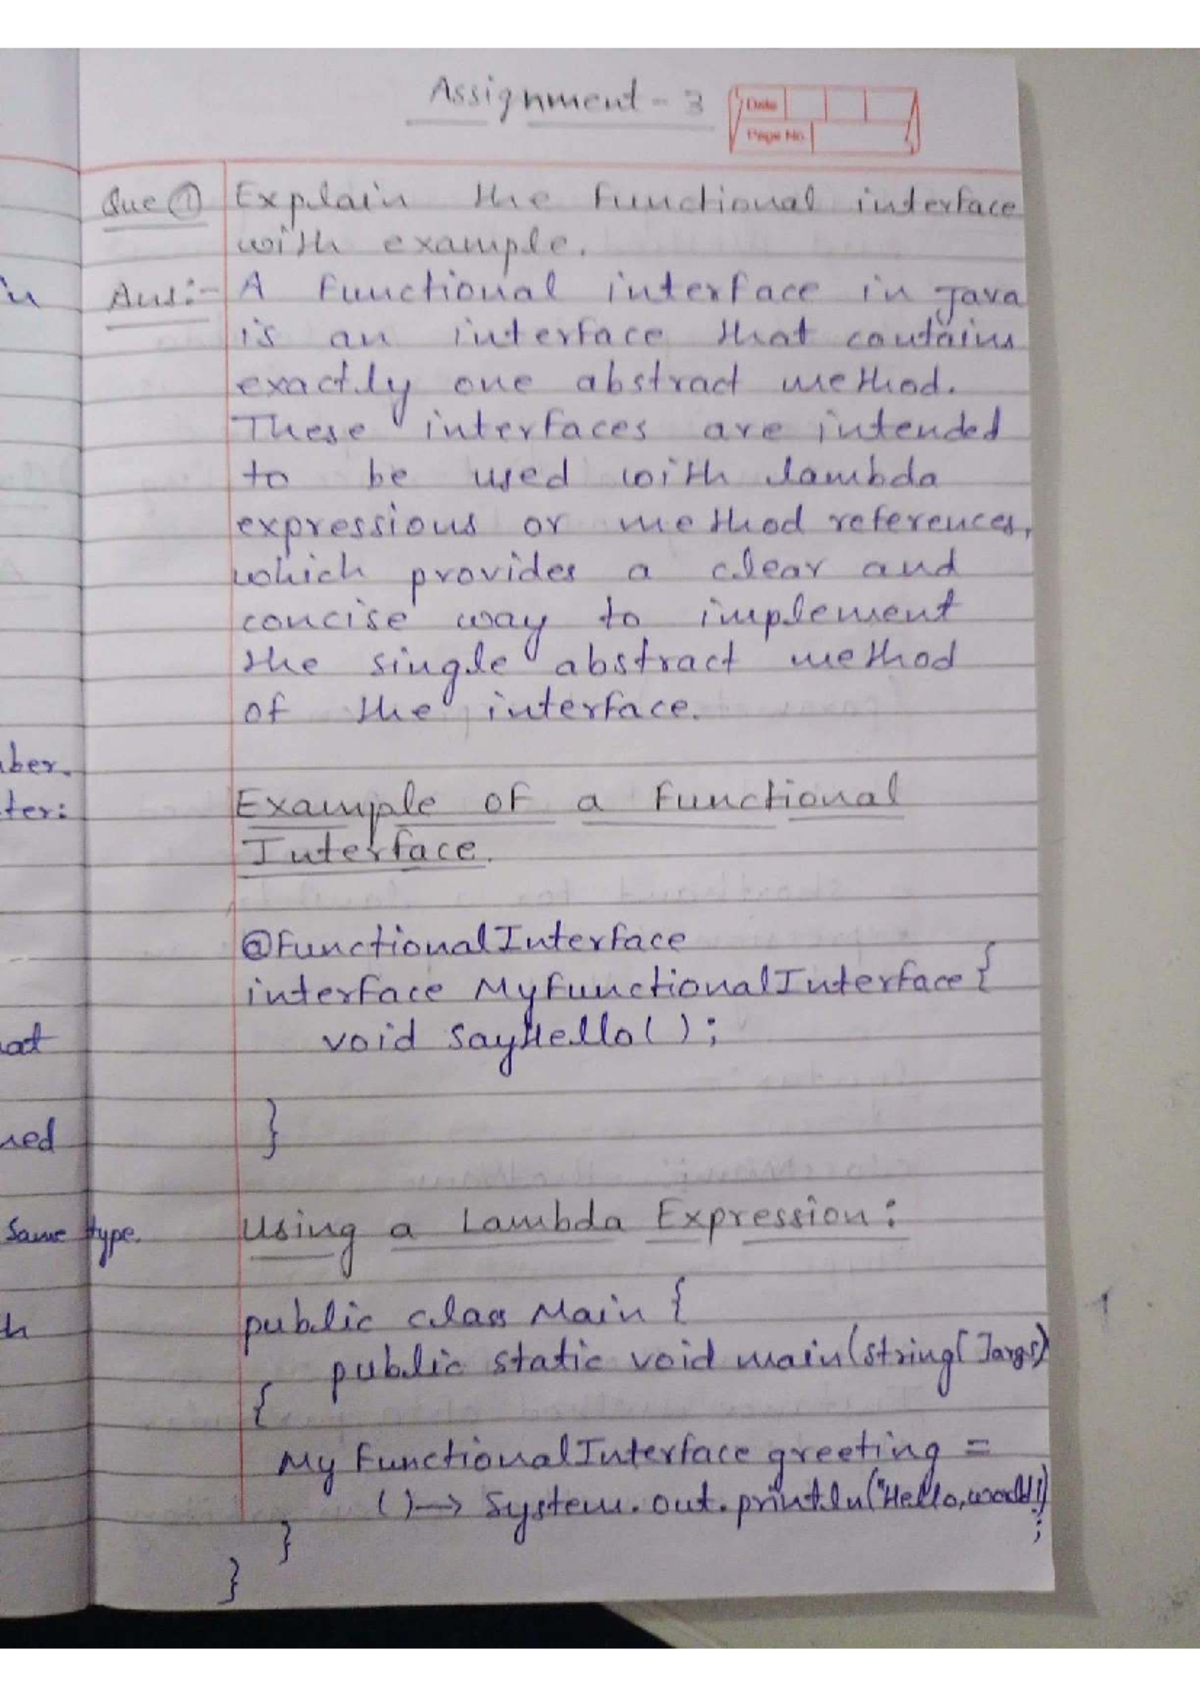 Assignment - 3
Date
Page No.
Que ① Explain the functional interface
with example.
Ans:- A functional interface in Java
is an interface that contains
exactly one abstract method.
These interfaces are intended
to be used with lambda
expressions or method references,
which provides a clear and
concise way to implement
the single abstract method
of the interface.
Example of a functional
Interface.
@FunctionalInterface
interface MyFunctionalInterface {
void sayHello( );
}
Using a Lambda Expression:
public class Main {
public static void main(string[ ]args)
{
My FunctionalInterface greeting =
( )→ System.out.println("Hello,world!)
;
}
}
ber.
ter:
at
ed
Same type.
h
1